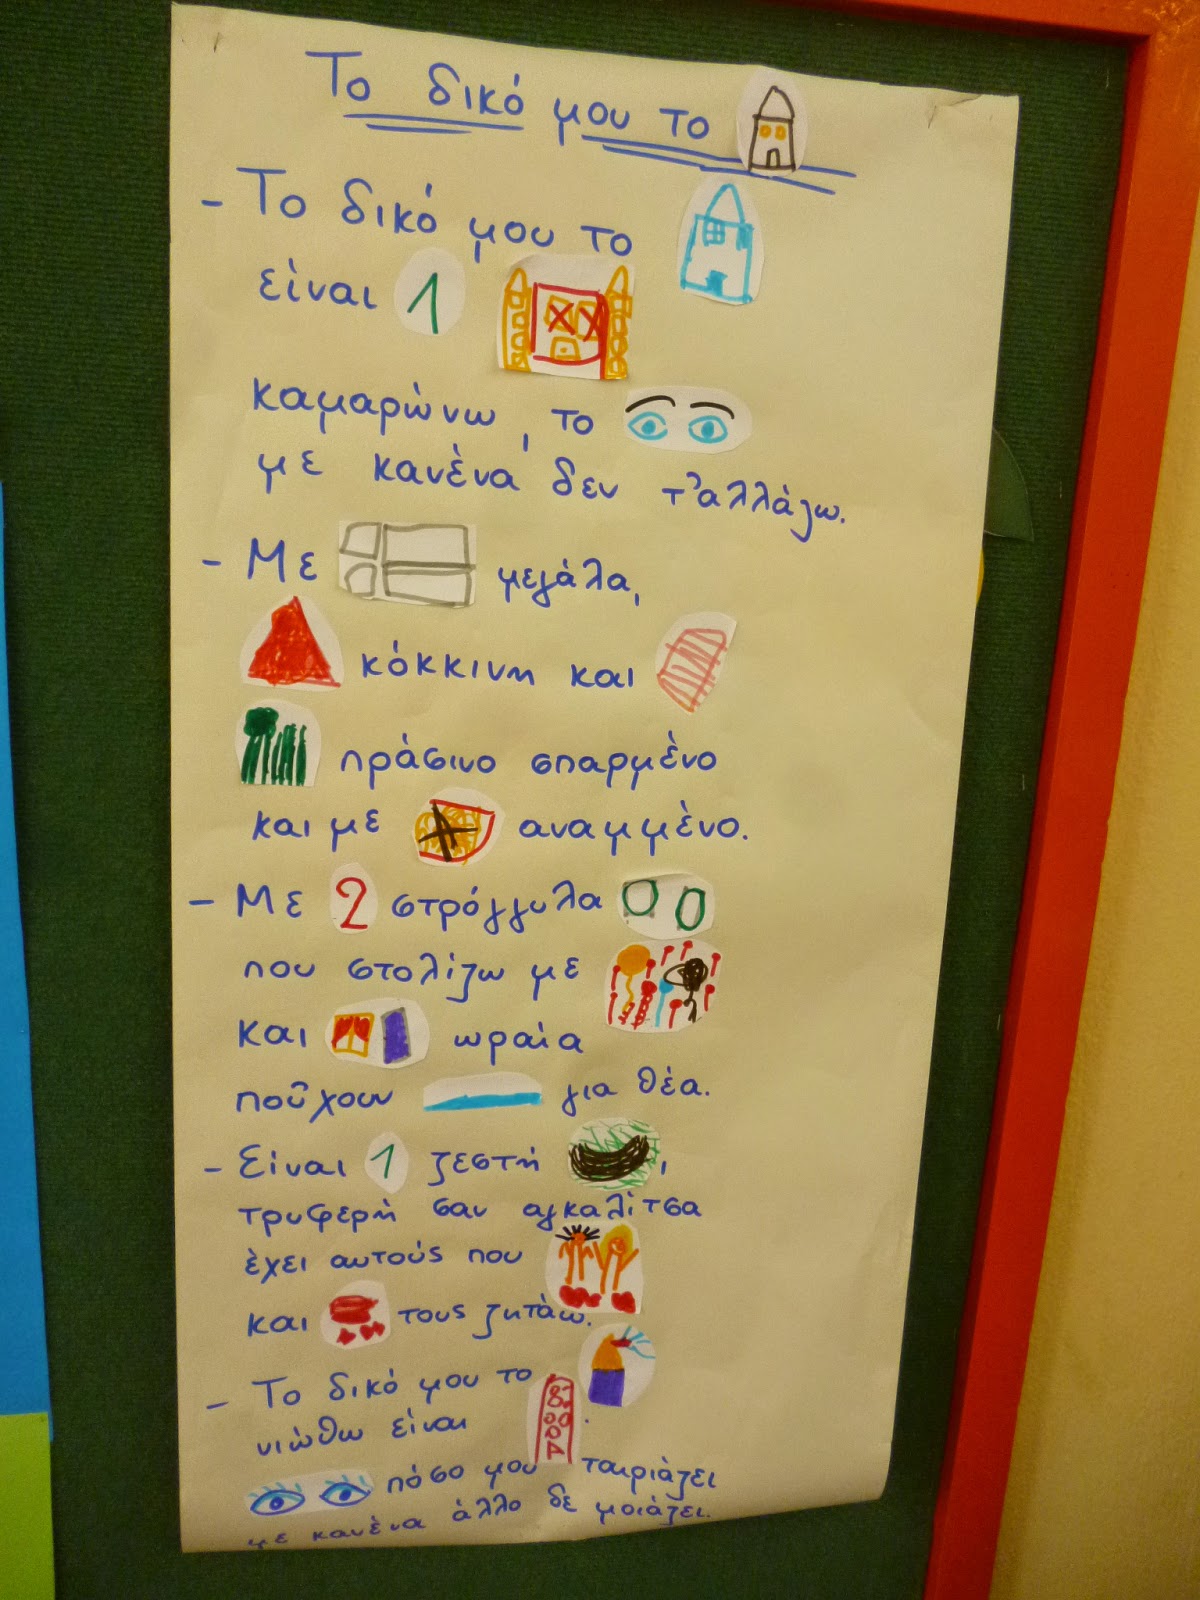 Το δικό μου το
- Το δικό μου το
είναι 1
καμαρώνω, το
με κανένα δεν τ'αλλάζω.
- Με μεγάλα,
κόκκινη και
πράσινο σπαρμένο
και με αναμμένο.
- Με 2 στρόγγυλα
που στολίζω με
και ωραία
πού'χουν για θέα.
- Είναι 1 ζεστή ,
τρυφερή σαν αγκαλίτσα
έχει αυτούς που
και τους ζητάω.
- Το δικό μου το
νιώθω είναι .
πόσο μου ταιριάζει
με κανένα άλλο δε μοιάζει.